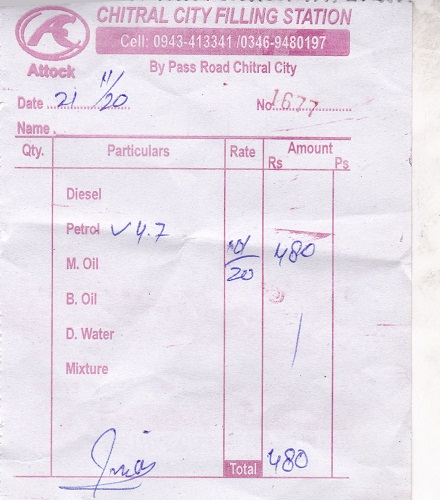 CHITRAL CITY FILLING STATION
Cell: 0943-413341 /0346-9480197
Attock
By Pass Road Chitral City
Date 21 11/20 No 1677
Name
Qty. Particulars Rate Amount
Rs Ps
Diesel
Petrol ✓ 4.7 480
M. Oil 20
B. Oil
D. Water
Mixture
Total 480